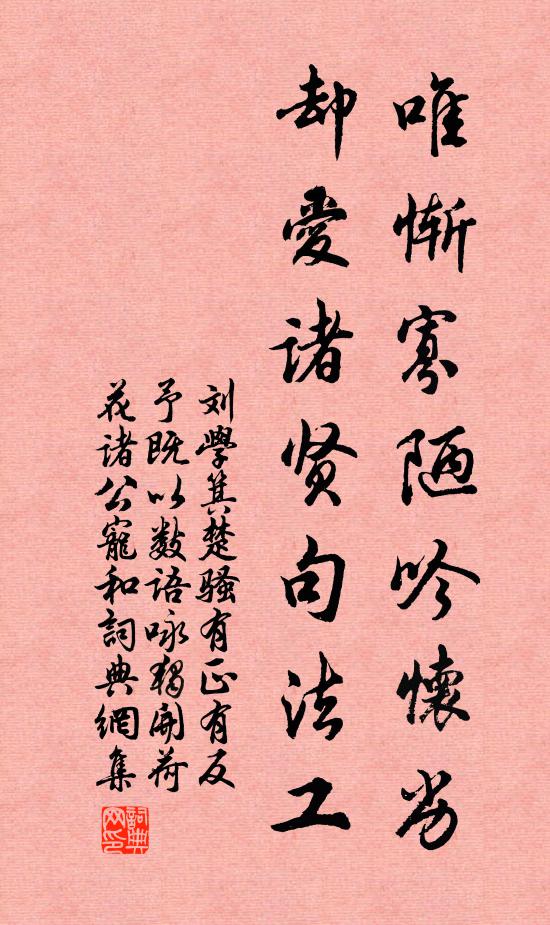 唯惭寡陋吟懷劣
却愛诸贤句法工
刘學箕楚骚有正有反
予既以数语咏獨開荷
花诸公寵和詞典網集
詞典网印